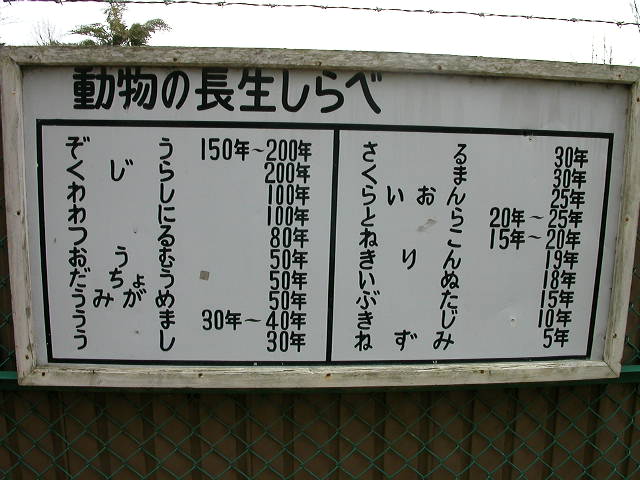 動物の長生しらべ
ぞう 150年~200年
くじら 200年
わし 100年
わに 100年
つる 80年
おうむ 50年
だちょう 50年
うみがめ 50年
うま 30年~40年
うし 30年
さる 30年
くま 30年
らいおん 25年
とら 20年~25年
ねこ 15年~20年
きりん 19年
いぬ 18年
ぶた 15年
きじ 10年
ねずみ 5年